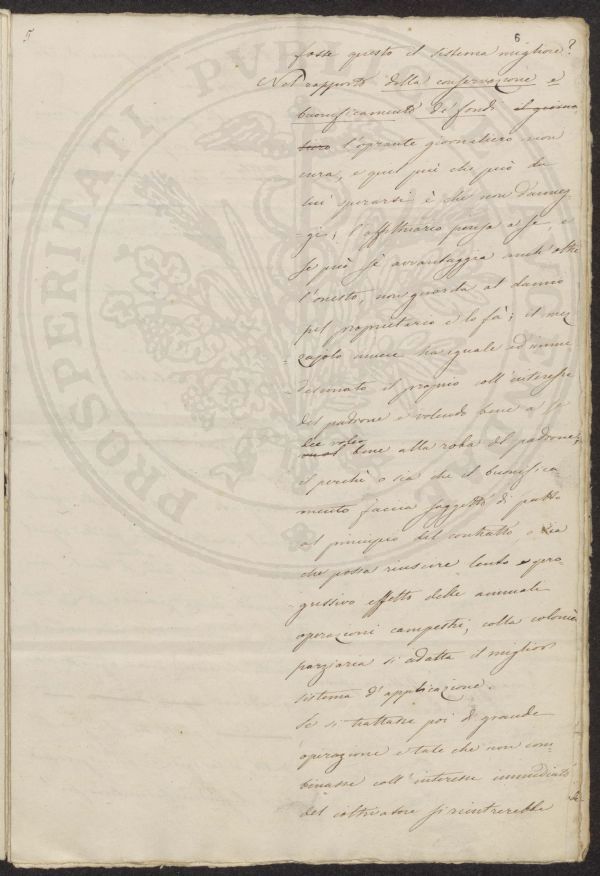 5
6
fosse questo il sistema migliore?
Nel rapporto della conservazione e
buonificamento de' fondi il giorna
liero l'oprante giornaliero non
cura, e quel più che può da
lui sperarsi è che non danneg
gi; l'affittuario pensa a se, e
se può si avvantaggia anch'oltre
l'onesto, non guarda al danno
pel proprietario e lo fà; il mez
zajolo invece ha eguale ed imme
desimato il proprio coll'interesse
del padrone e volendo bene a se
dee voler
bene alla roba del padrone;
il perchè o sia che il buonifica
mento faccia soggetto di patto
al principio del contratto o sia
che possa riuscire lento e pro
gressivo effetto delle annuali
operazioni campestri, colla colonìa
parziaria si adatta il miglior
sistema d'applicazione.
Se si trattasse poi di grande
operazione e tale che non com
binasse coll'interesse immediato
del coltivatore si rientrerebbe
PROSPERITATI PUBLICAE